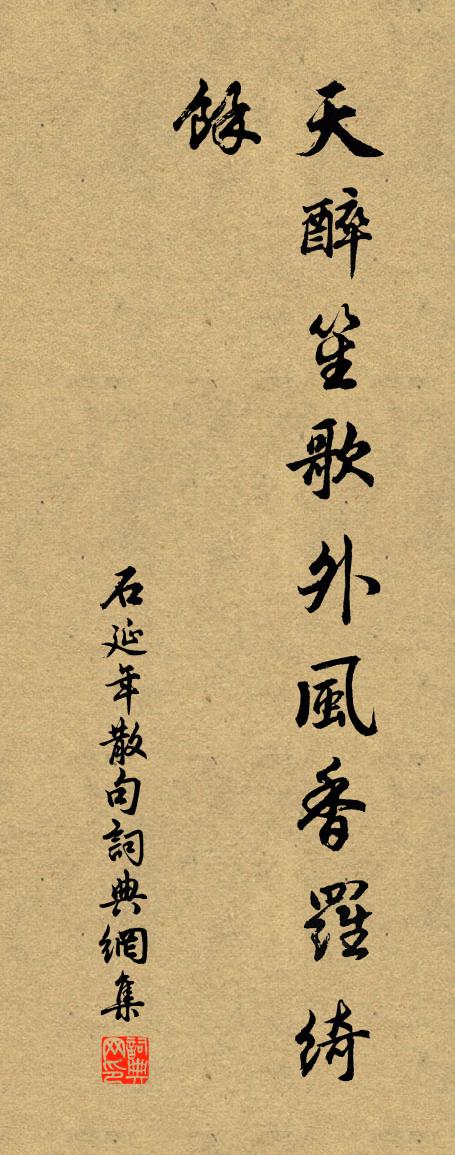 天醉笙歌外風香羅綺
餘
石延年散句詞典網集
詞典网印